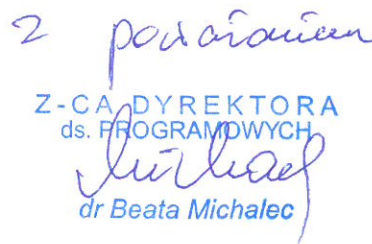 z poważaniem
Z-CA DYREKTORA
ds. PROGRAMOWYCH
Michalec
dr Beata Michalec